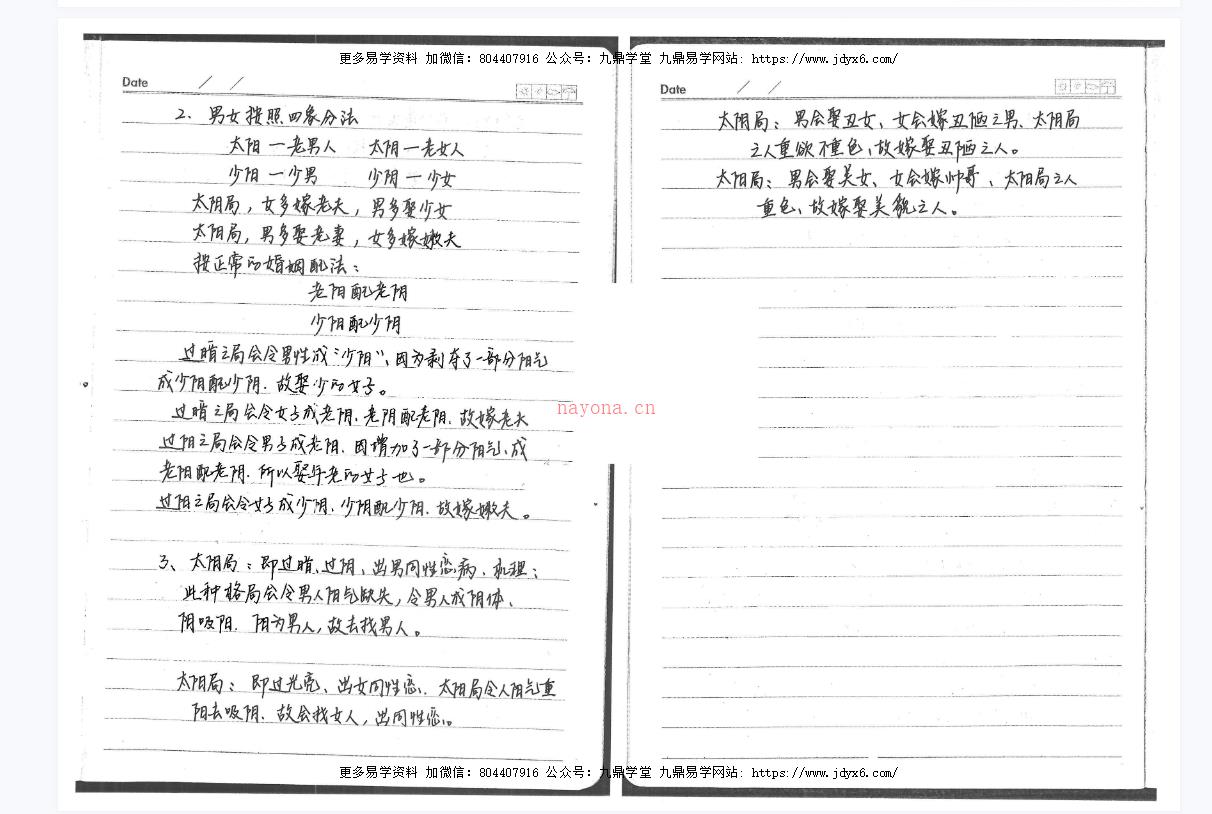 更多易学资料 加微信：804407916 公众号：九鼎学堂 九鼎易学网站：https://www.jdyx6.com/
Date / /
2、男女按照四象分法
太阳一老男人 太阴一老女人
少阳一少男 少阴一少女
太阴局，女多嫁老夫，男多娶少女
太阳局，男多娶老妻，女多嫁嫩夫
按正常的婚姻配法：
老阳配老阴
少阳配少阴
过暗之局会令男性成“少阳”、因为剥夺了一部分阳气
成少阳配少阴．故娶少的女子。
过暗之局会令女子成老阴．老阴配老阳．故嫁老夫
过阳之局会令男子成老阳．因增加了一部分阳气、成
老阳配老阴．所以娶年老的女子也。
过阳之局会令女子成少阴．少阴配少阳．故嫁嫩夫。
3、太阴局：即过暗、过阴、出男同性恋病．机理：
此种格局会令男人阳气缺失，令男人成阴体、
阴吸阳．阳为男人，故去找男人。
太阳局：即过光亮、出女同性恋．太阳局令人阳气重
阳去吸阴．故会找女人，出同性恋。
Date / /
太阴局：男会娶丑女、女会嫁丑陋之男、太阴局
之人重欲不重色，故嫁娶丑陋之人。
太阳局：男会娶美女、女会嫁帅哥、太阳局之人
重色、故嫁娶美貌之人。
nayona.cn
更多易学资料 加微信：804407916 公众号：九鼎学堂 九鼎易学网站：https://www.jdyx6.com/